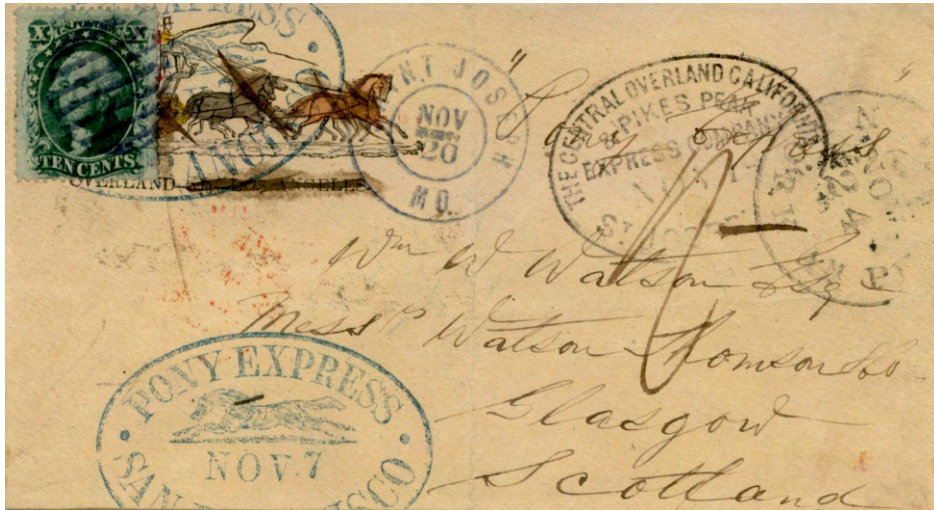 X U.S. POSTAGE X
TEN CENTS
EXPRESS
OVERLAND LOS ANGELES.
SAINT JOSEPH
NOV
20
MO.
"Pony Express"
THE CENTRAL OVERLAND CALIFORNIA
& PIKES PEAK
EXPRESS COMPANY
ST. JOSEPH
N. YORK AM PK
NOV
24
Wm W Watson Esq
Messrs Watson Thomson & Co
Glasgow
Scotland
PONY EXPRESS
NOV. 7
SAN FRANCISCO